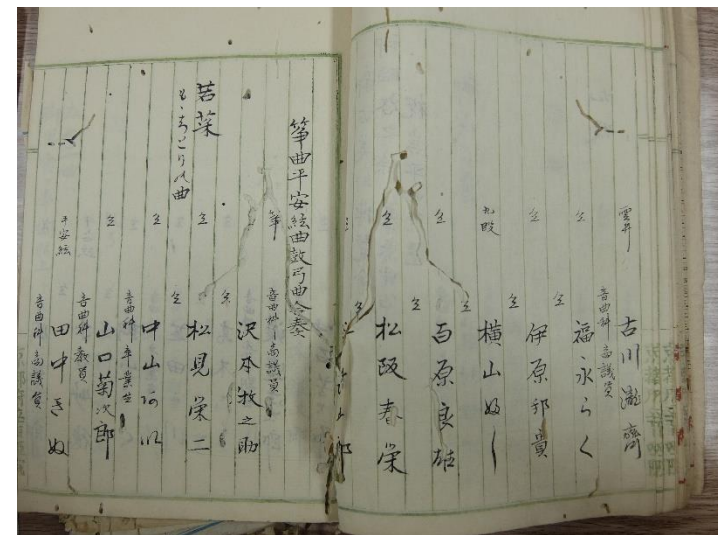 雲井 音曲科商議員 古川瀧齋
仝 仝 福永らく
仝 仝 伊原邦貴
九段 仝 横山
仝 仝 百原良
仝 仝 松阪春栄
仝 仝 郎
箏曲平安絃曲鼓弓曲合奏
箏 音曲科商議員 沢本牧之助
若菜
仝 仝 松見栄二
の曲
仝 仝 中山
仝 音曲科卒業生 山口菊次郎
音曲科教員
平安絃 音曲科商議員 田中きぬ